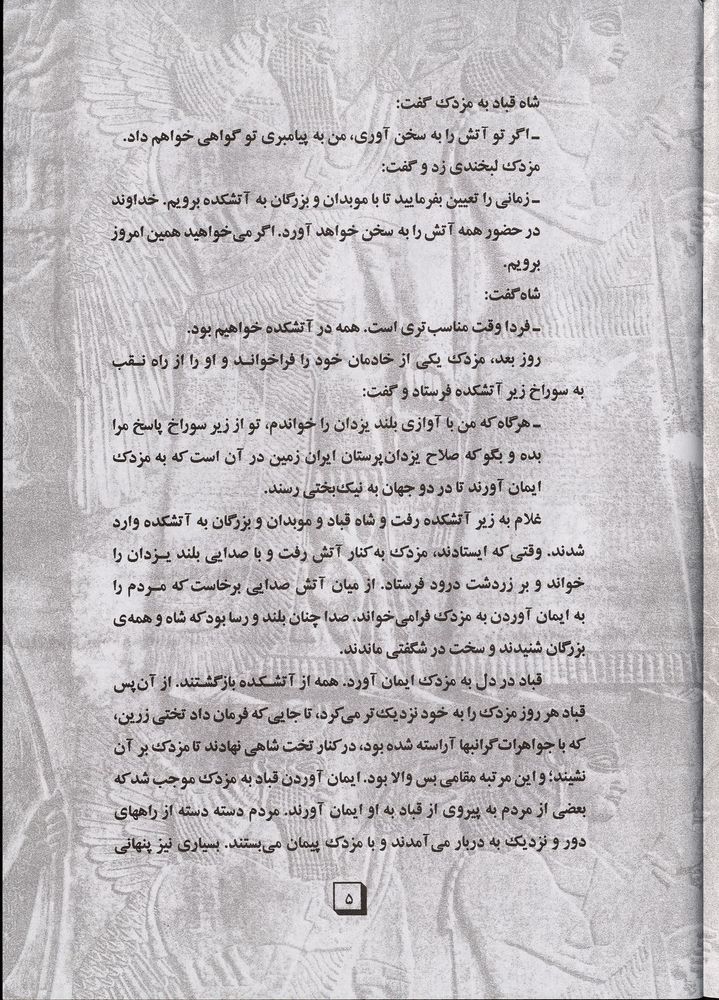 شاه قباد به مزدک گفت:
ـ اگر تو آتش را به سخن آوری، من به پیامبری تو گواهی خواهم داد.
مزدک لبخندی زد و گفت:
ـ زمانی را تعیین بفرمایید تا با موبدان و بزرگان به آتشکده برویم. خداوند
در حضور همه آتش را به سخن خواهد آورد. اگر می‌خواهید همین امروز
برویم.
شاه گفت:
ـ فردا وقت مناسب‌تری است. همه در آتشکده خواهیم بود.
روز بعد، مزدک یکی از خادمان خود را فراخوانـد و او را از راه نـقب
به سوراخ زیر آتشکده فرستاد و گفت:
ـ هرگاه که من با آوازی بلند یزدان را خواندم، تو از زیر سوراخ پاسخ مرا
بده و بگو که صلاح یزدان‌پرستان ایران زمین در آن است که به مزدک
ایمان آورند تا در دو جهان به نیک‌بختی رسند.
غلام به زیر آتشکده رفت و شاه قباد و موبدان و بزرگان به آتشکده وارد
شدند. وقتی که ایستادند، مزدک به کنار آتش رفت و با صدایی بلند یـزدان را
خواند و بر زردشت درود فرستاد. از میان آتش صدایی برخاست که مـردم را
به ایمان آوردن به مزدک فرامی‌خواند. صدا چنان بلند و رسا بود که شاه و همه‌ی
بزرگان شنیدند و سخت در شگفتی ماندند.
قباد در دل به مزدک ایمان آورد. همه از آتشـکده بازگشـتند. از آن پس
قباد هر روز مزدک را به خود نزدیک‌تر می‌کرد، تا جایی که فرمان داد تختی زرین،
که با جواهرات گرانبها آراسته شده بود، در کنار تخت شاهی نهادند تا مزدک بر آن
نشیند؛ و این مرتبه مقامی بس والا بود. ایمان آوردن قباد به مزدک موجب شد که
بعضی از مردم به پیروی از قباد به او ایمان آورند. مردم دسته دسته از راههای
دور و نزدیک به دربار می‌آمدند و با مزدک پیمان می‌بستند. بسیاری نیز پنهانی
۵